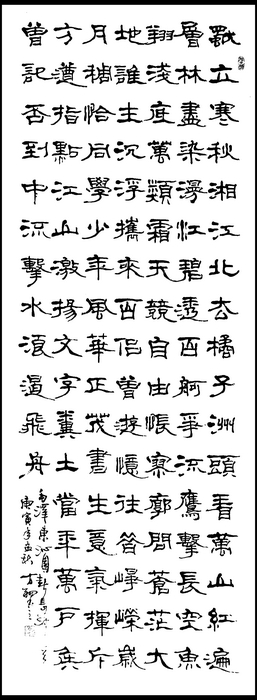 獨立寒秋湘江北去橘子洲頭看萬山紅遍
層林盡染漫江碧透百舸爭流鷹擊長空魚
翔淺底萬類霜天競自由悵寥廓問蒼茫大
地誰主沉浮攜來百侶曾遊憶往昔崢嶸歲
月稠恰同學少年風華正茂書生意氣揮斥
方遒指點江山激揚文字糞土當年萬戶侯
曾記否到中流擊水浪遏飛舟
毛澤東沁園春長沙
庚寅年